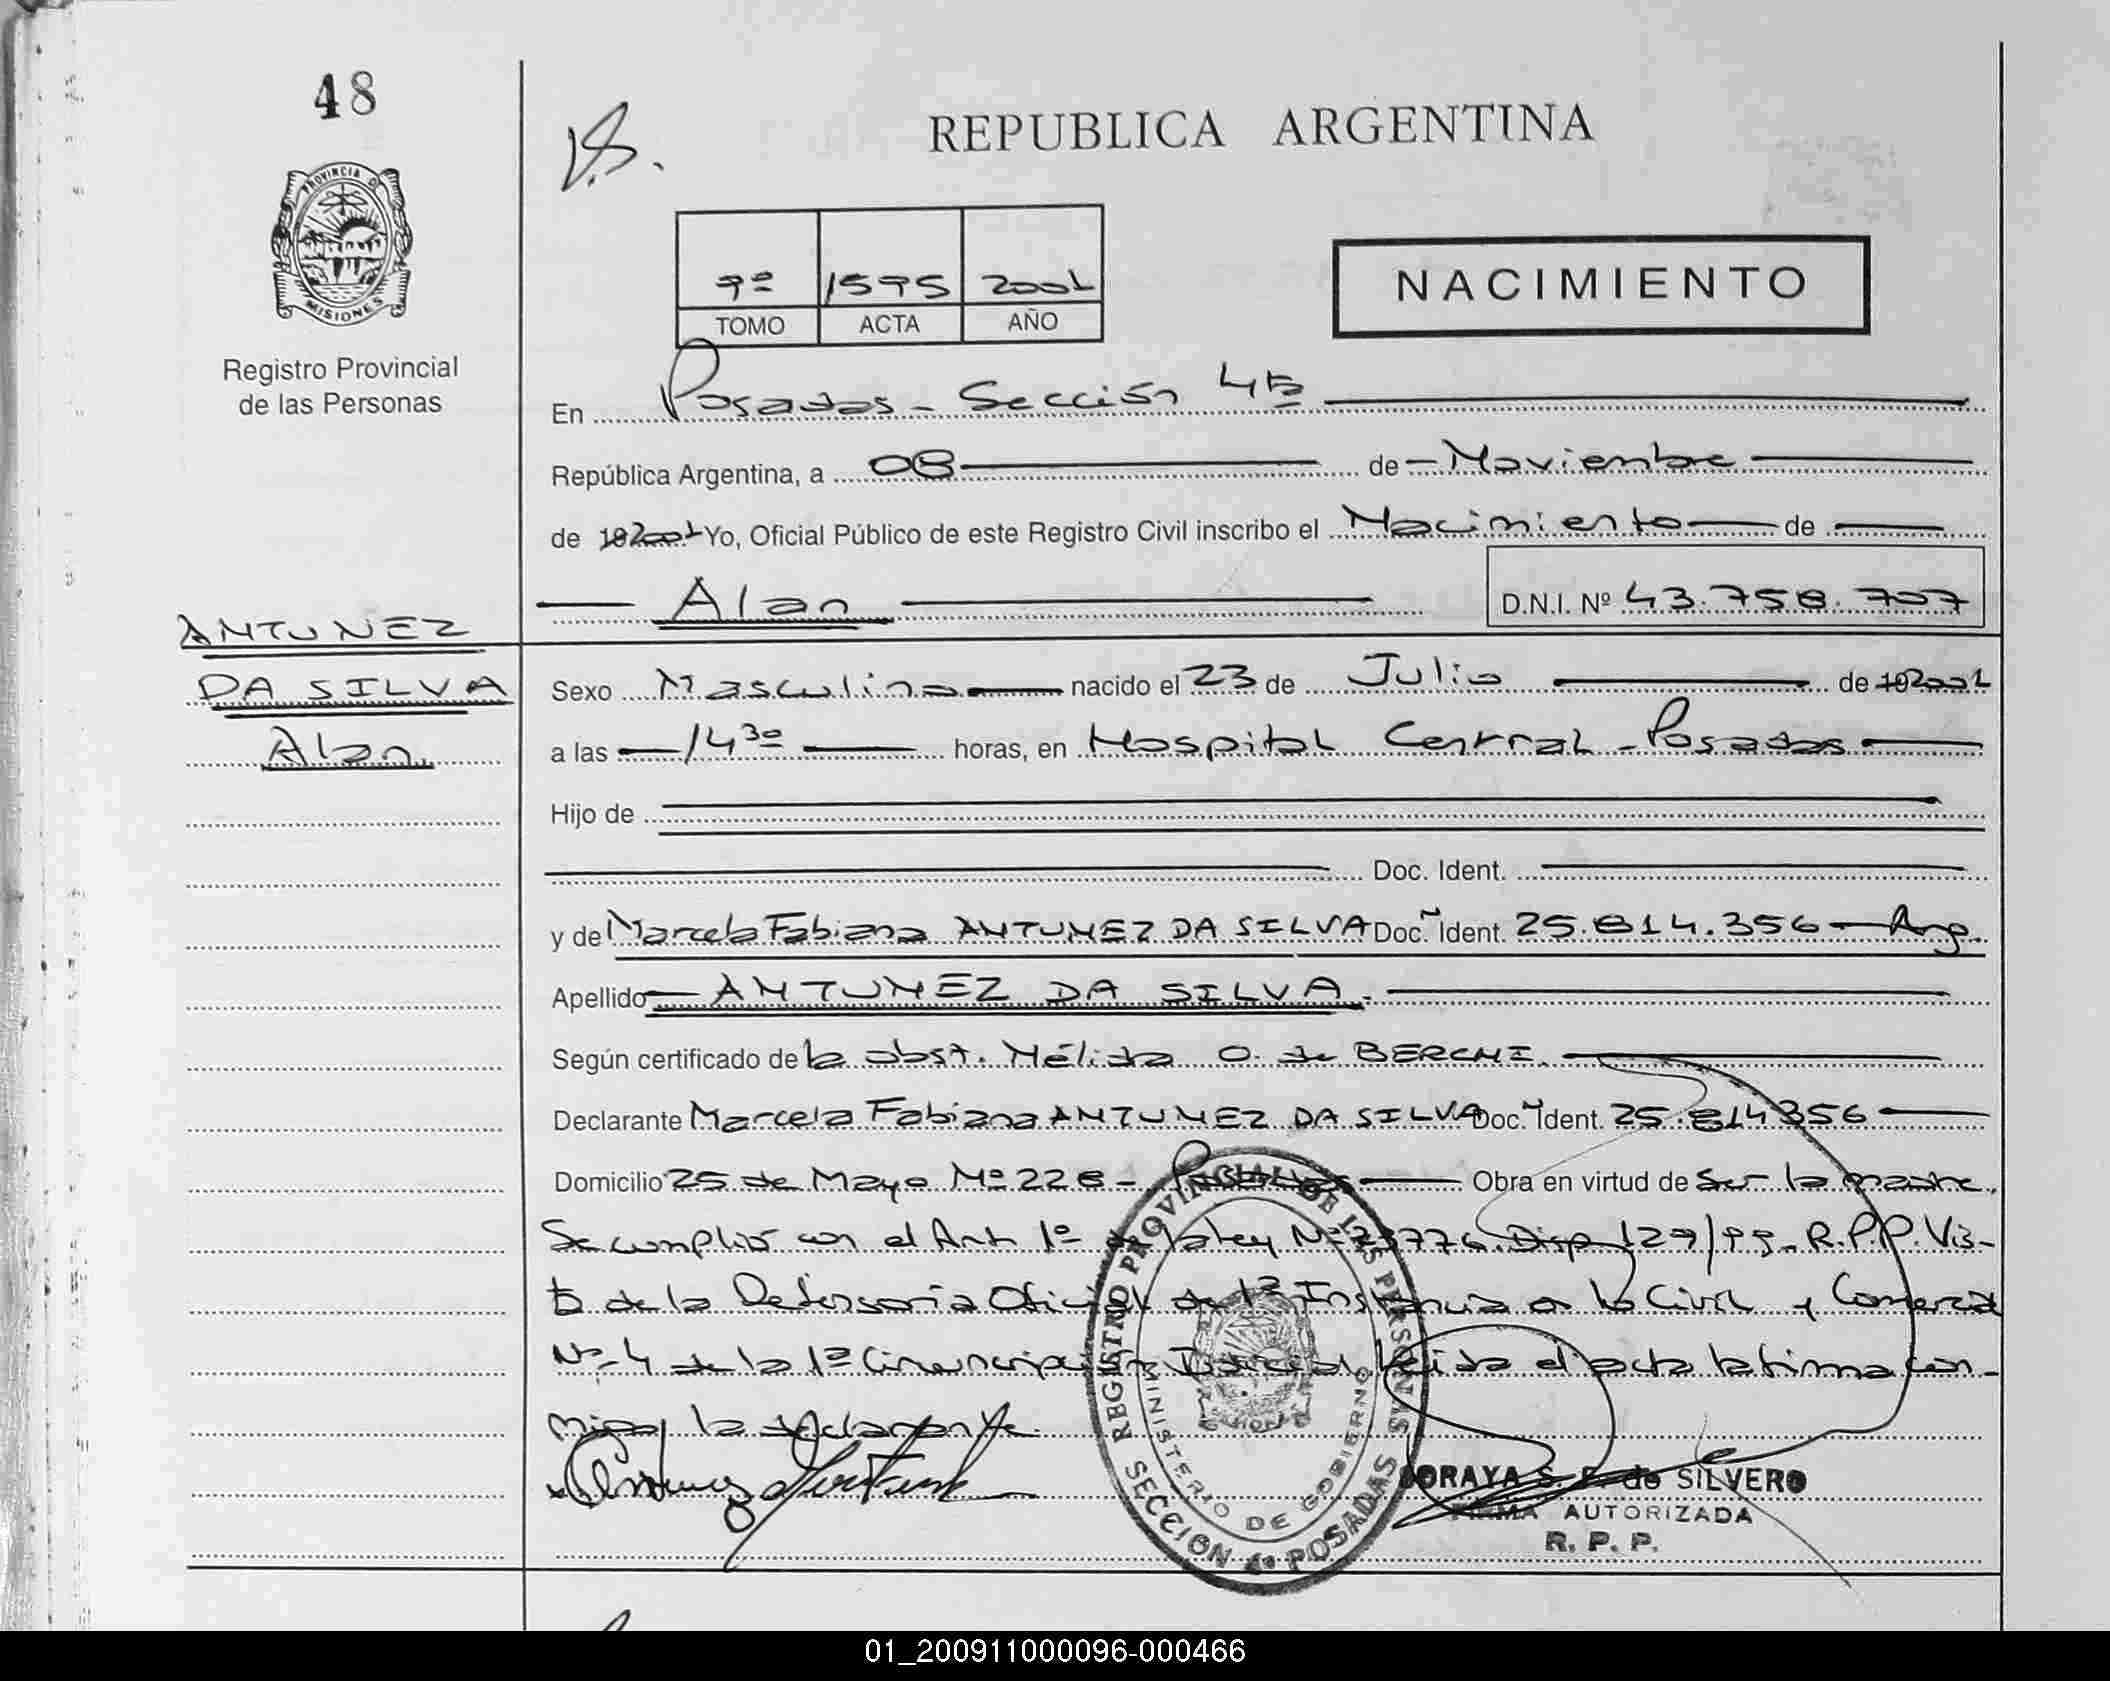 48
V.S.
REPUBLICA ARGENTINA
PROVINCIA D
MISIONES
9º 1595 2001
TOMO ACTA AÑO
NACIMIENTO
Registro Provincial
de las Personas
En Posadas - Sección 4ta
República Argentina, a 08 de - Noviembre
de 2001 Yo, Oficial Público de este Registro Civil inscribo el Nacimiento de
Alan D.N.I. Nº 43.758.707
ANTUNEZ
DA SILVA
Alan
Sexo Masculino nacido el 23 de Julio de 2001
a las 14 30 horas, en Hospital Central - Posadas
Hijo de
Doc. Ident.
y de Marcela Fabiana ANTUNEZ DA SILVA Doc. Ident. 25.814.356 - Arg.
Apellido ANTUNEZ DA SILVA.
Según certificado de la obst. Nélida O. de BERCHI.
Declarante Marcela Fabiana ANTUNEZ DA SILVA Doc. Ident. 25.814356
Domicilio 25 de Mayo Nº 228 - Posadas Obra en virtud de Ser la madre.
Se cumplió con el Art 1º de la ley Nº 23776. Disp 129/99. R.P.P. Vis-
to de la Defensoria Oficial de 1ª Instancia en lo Civil y Comercial
Nº 4 de la 1ª Circunscripción Judicial. Leida el acta la firma con-
migo la declarante.
REGISTRO PROVINCIAL DE LAS PERSONAS
MINISTERIO DE GOBIERNO
SECCION 4ª POSADAS
SORAYA S. F. de SILVERO
FIRMA AUTORIZADA
R. P. P.
01_200911000096-000466